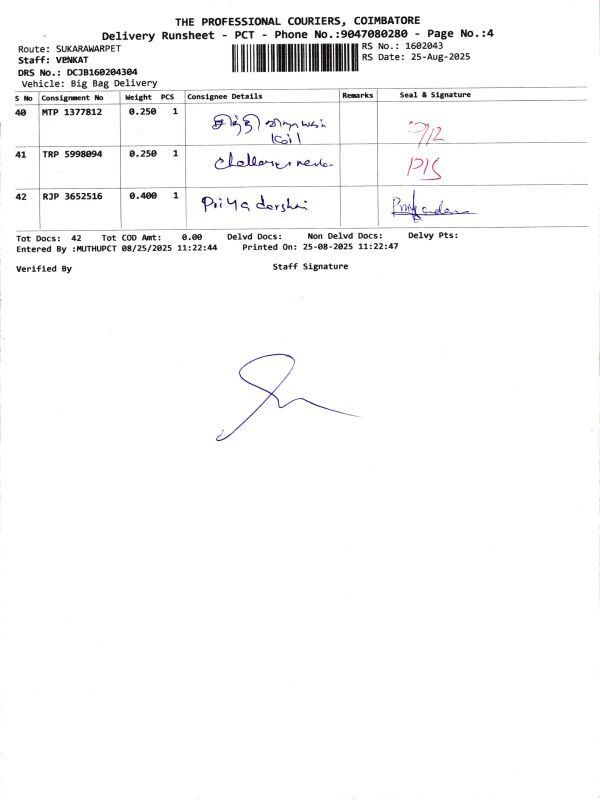 THE PROFESSIONAL COURIERS, COIMBATORE
Delivery Runsheet - PCT - Phone No.:9047080280 - Page No.:4
Route: SUKARAWARPET
RS No.: 1602043
Staff: VENKAT
RS Date: 25-Aug-2025
DRS No.: DCJB160204304
Vehicle: Big Bag Delivery
S No Consignment No Weight PCS Consignee Details Remarks Seal & Signature
40 MTP 1377812 0.250 1
41 TRP 5998094 0.250 1
42 RJP 3652516 0.400 1 Priya darshni
Tot Docs: 42 Tot COD Amt: 0.00 Delvd Docs: Non Delvd Docs: Delvy Pts:
Entered By :MUTHUPCT 08/25/2025 11:22:44 Printed On: 25-08-2025 11:22:47
Verified By Staff Signature